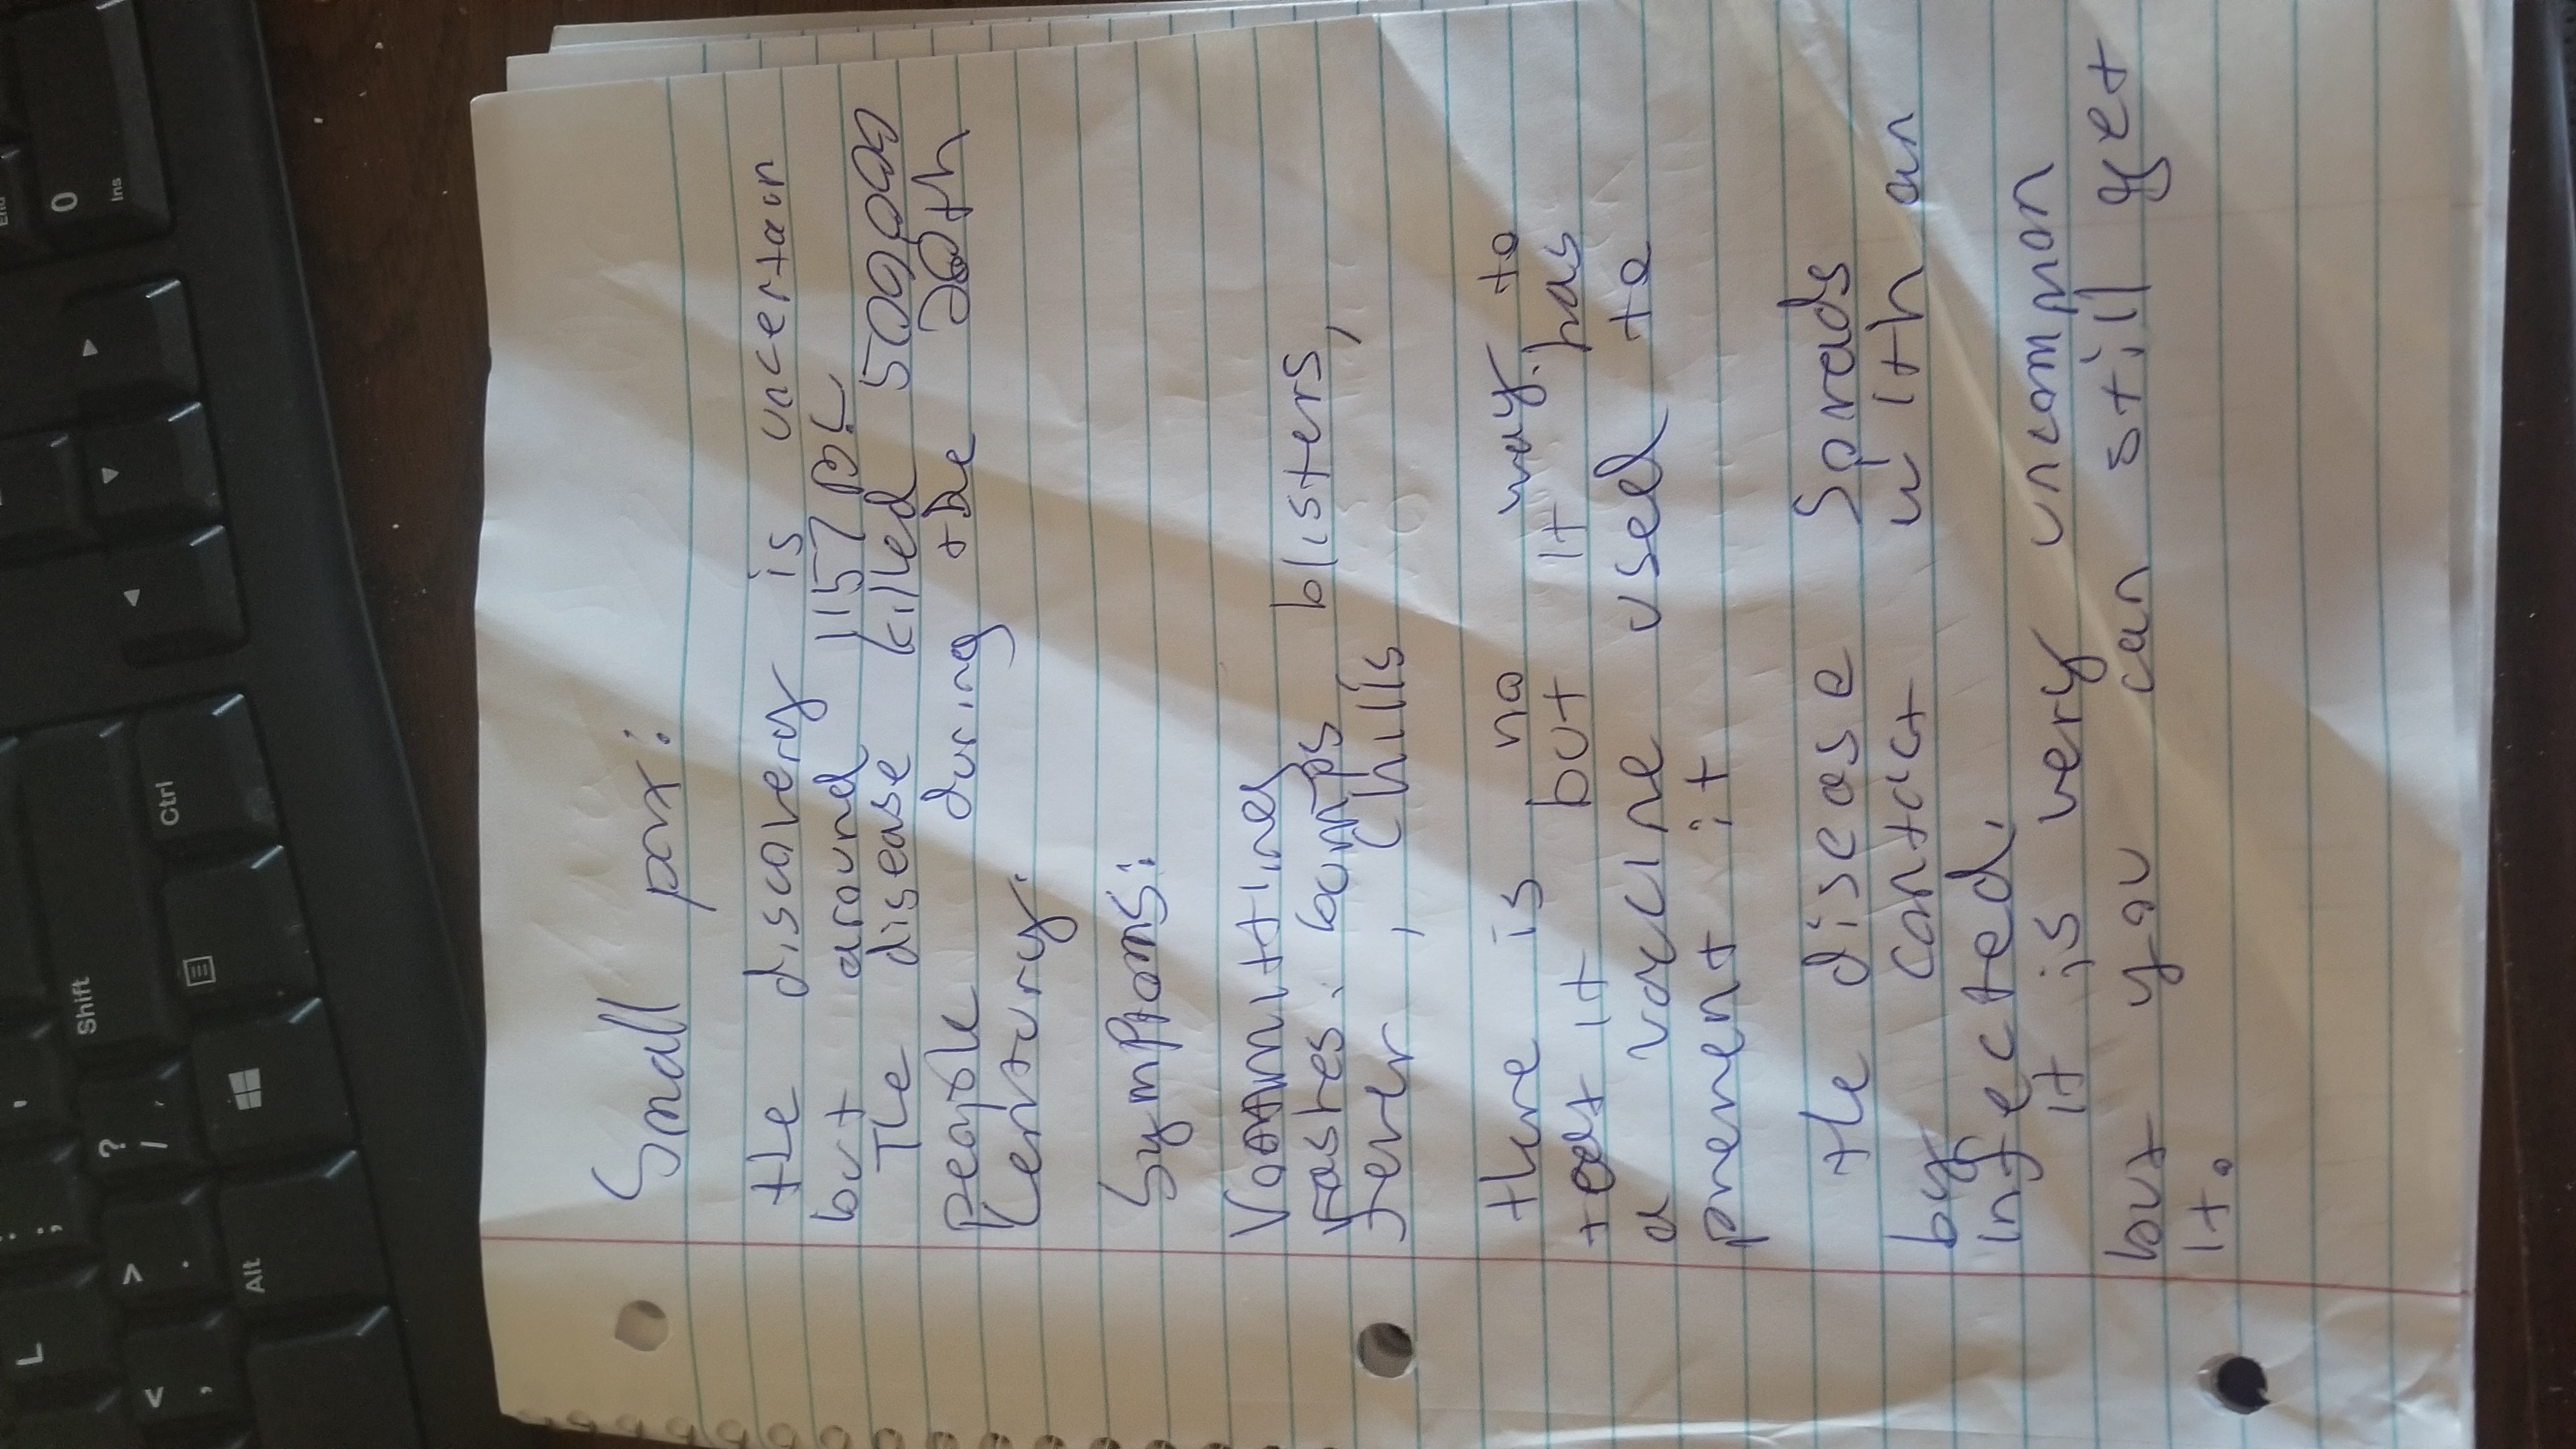 Small pox:
the discovery is uncertain
but around 1157 B.C
The disease killed 500000
people during the 20th
Kentury.
Symptoms:
Voamitting
rashes. bumps blisters,
fever, chills
there is no way to
it but it has
a vacine used to
prenent it
the disease Spreads
by contact with an
infected.
it is very uncommon
but you can still get
it.
L
:
;
"
'
Shift
<
,
>
.
?
/
Alt
Ctrl
End
0
Ins